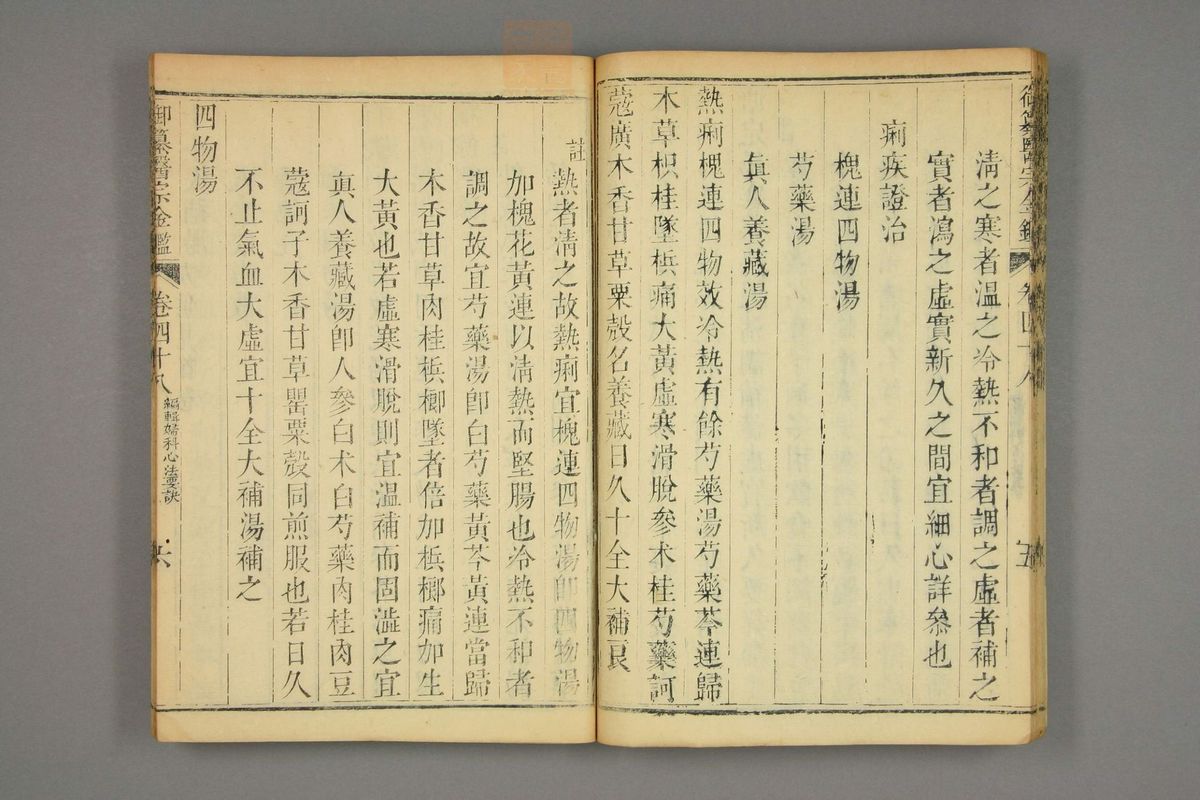 御纂醫宗金鑑 卷四十八 五
淸之寒者溫之冷熱不和者調之虛者補之
實者瀉之虛實新久之間宜細心詳叅也
痢疾證治
槐連四物湯
芍藥湯
眞人養藏湯
熱痢槐連四物效冷熱有餘芍藥湯芍藥芩連歸
木草枳桂墜梹痛大黃虛寒滑脫參术桂芍藥訶
蔻廣木香甘草粟殼名養藏日久十全大補良
註
熱者淸之故熱痢宜槐連四物湯卽四物湯
加槐花黃連以淸熱而堅腸也冷熱不和者
調之故宜芍藥湯卽白芍藥黃芩黃連當歸
木香甘草肉桂梹榔墜者倍加梹榔痛加生
大黃也若虛寒滑脫則宜溫補而固澁之宜
眞人養藏湯卽人參白术白芍藥肉桂肉豆
蔻訶子木香甘草罌粟殼同煎服也若日久
不止氣血大虛宜十全大補湯補之
四物湯
御纂醫宗金鑑 卷四十八 編輯婦科心法要訣 六